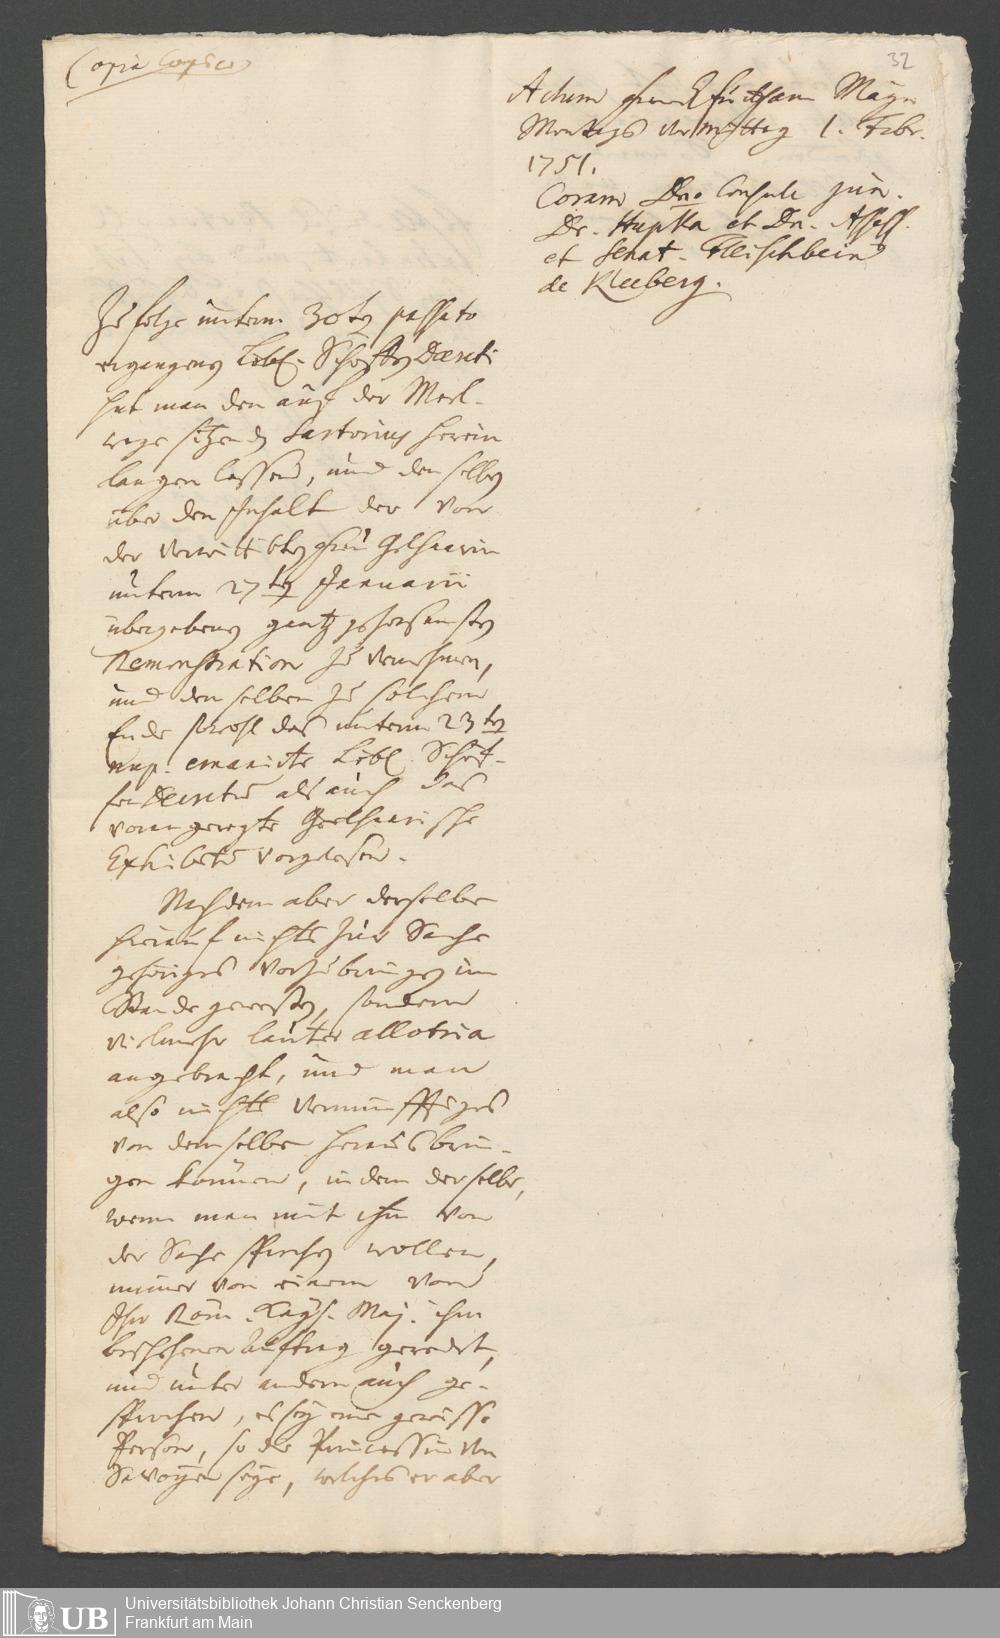 Copia Copiae
32
Actum Franckfurth am Mayn
Montags Vormittag 1. Febr.
1751.
Coram Dno Consule jun.
Dr. Hupka et Dn. Assess.
et Senat. Fleischbein
de Kleeberg.
Zu folge unterm 30ten passato
ergangenen Löbl. Schöffen Decreti
hat man den auf der Meel-
wage sitzenden Sartorius herein
langen lassen, und denselben
über den Inhalt der von
der verwittibten Frau Gelhaarin
unterm 27ten Januarii
übergebenen gantz gehorsamsten
Remonstration zu vernehmen,
und denselben zu solchem
Ende sowohl das unterm 23ten
nup. emanirte Löbl. Schöf-
fen Decretum als auch das
voran geregte Geelhaarische
Exhibitum vorgelesen.
Nachdem aber derselbe
hierauf nichts zur Sache
gehöriges vorzubringen im
Stande gewesen, sondern
vielmehr lauter allotria
angebracht, und man
also nichts vernünfftiges
von demselben herausbrin-
gen können, indem derselbe,
wenn man mit ihm von
der Sache sprechen wollen,
immer von einem von
Ihr Röm. Kays. Maj. ihm
beschehenen Auftrag geredet,
und unter andern auch ge-
sprochen, es sey eine gewisse
Person, so die Princessin von
Savoyen seye, welches er aber
UB
Universitätsbibliothek Johann Christian Senckenberg
Frankfurt am Main